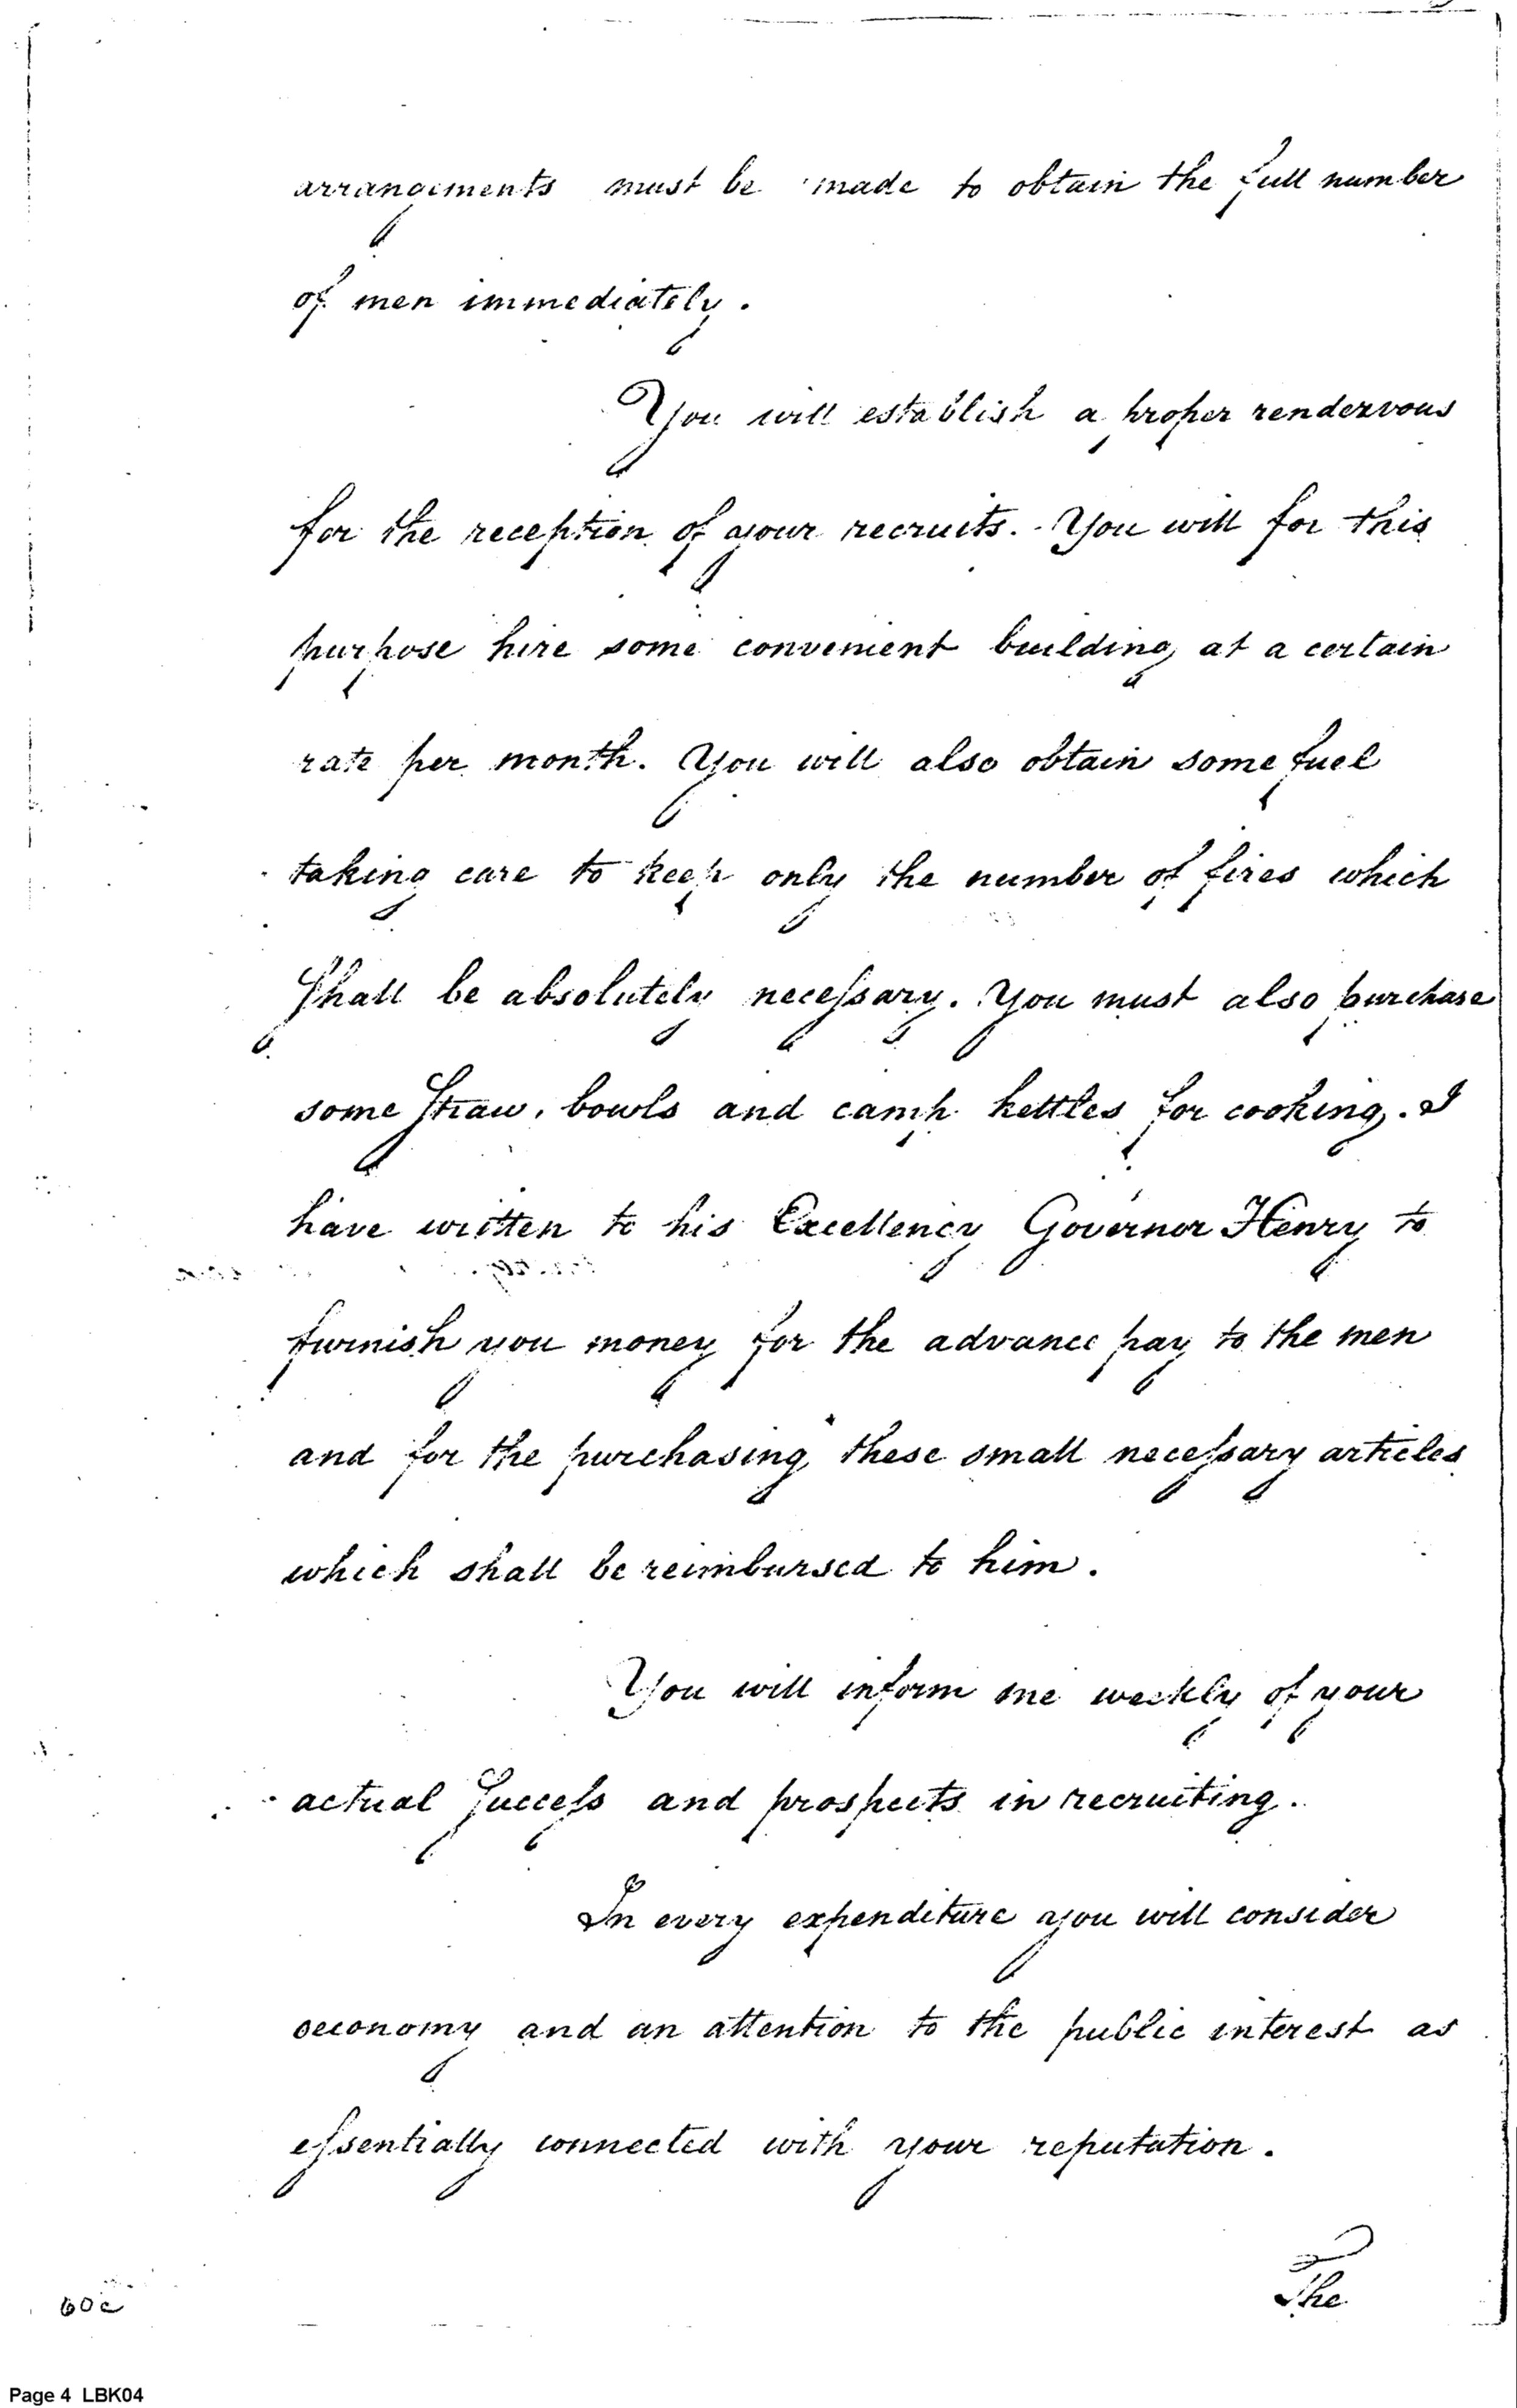 arrangements must be made to obtain the full number
of men immediately.
You will establish a proper rendezvous
for the reception of your recruits. You will for this
purpose hire some convenient building at a certain
rate per month. You will also obtain some fuel
taking care to keep only the number of fires which
Shall be absolutely neceſsary. You must also purchase
some Straw, bowls and camp kettles for cooking. I
have written to his Excellency Governor Henry to
furnish you money for the advance pay to the men
and for the purchasing these small neceſsary articles
which shall be reimbursed to him.
You will inform me weekly of your
actual Succeſs and prospects in recruiting.
In every expenditure you will consider
oeconomy and an attention to the public interest as
eſsentially connected with your reputation.
The
60c
Page 4 LBK04